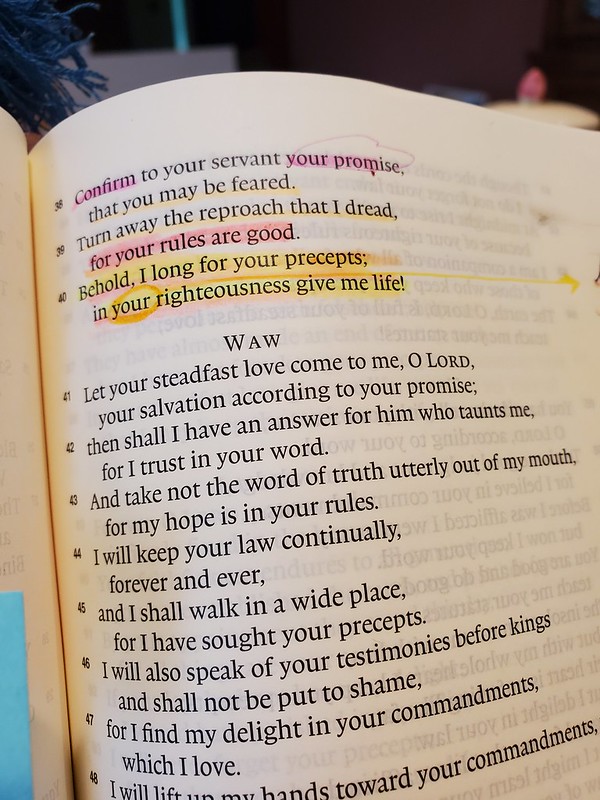 38 Confirm to your servant your promise,
that you may be feared.
39 Turn away the reproach that I dread,
for your rules are good.
40 Behold, I long for your precepts;
in your righteousness give me life!
WAW
41 Let your steadfast love come to me, O LORD,
your salvation according to your promise;
42 then shall I have an answer for him who taunts me,
for I trust in your word.
43 And take not the word of truth utterly out of my mouth,
for my hope is in your rules.
44 I will keep your law continually,
forever and ever,
45 and I shall walk in a wide place,
for I have sought your precepts.
46 I will also speak of your testimonies before kings
and shall not be put to shame,
47 for I find my delight in your commandments,
which I love.
48 I will lift up my hands toward your commandments,